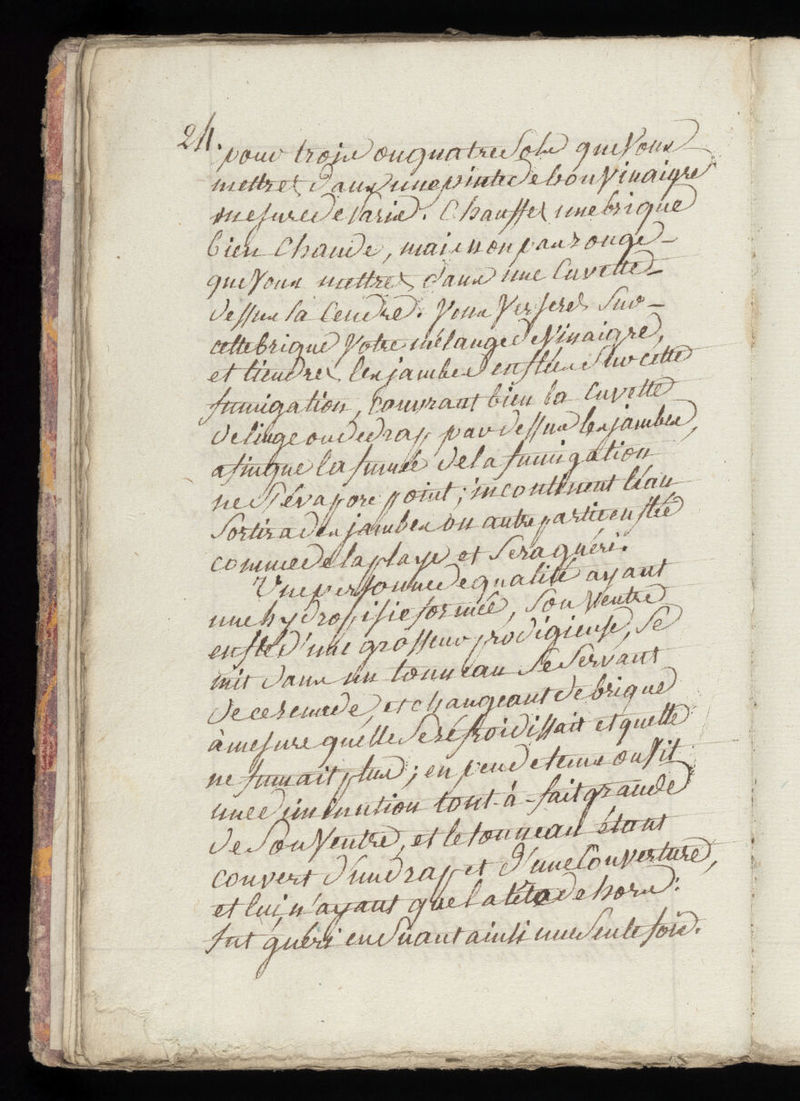 24.
pour trois ou quatre Sols que Vous
mettrez dans une pinte de bon Vinaigre
mesure de Paris. Chauffez une brique
bien Chaude, mais non pas rouge
que Vous mettrez dans une Cuvette
dessus la Cendre. Vous Verserez Sur
cette brique Votre mélange de Vinaigre,
et tiendrez les jambes enflées Sur cette
fumigation, Couvrant bien la Cuvette
de linge ou de drap par dessus les jambes,
afin que la fumée de la fumigation
ne S'évapore point; incontinent l'eau
Sortira des jambes ou autre partie enflée
comme de la playe et Sera guéri.
Une personne de qualité ayant
une hydropisie formée, Son Ventre
enflé d'une grosseur prodigieuse, Se
mit dans un tonneau Se Servant
de ce remède, et changeant de brique
à mesure quelle Se réfroidissait et quelle
ne fumait plus; en peu de tems on Vit
une diminution tout-à-fait grande
de Son Ventre, et le tonneau étant
couvert d'un drap et d'une Couverture,
et lui, n'ayant que la tête dehors:
fut guéri en Suant ainsi une Seule fois.